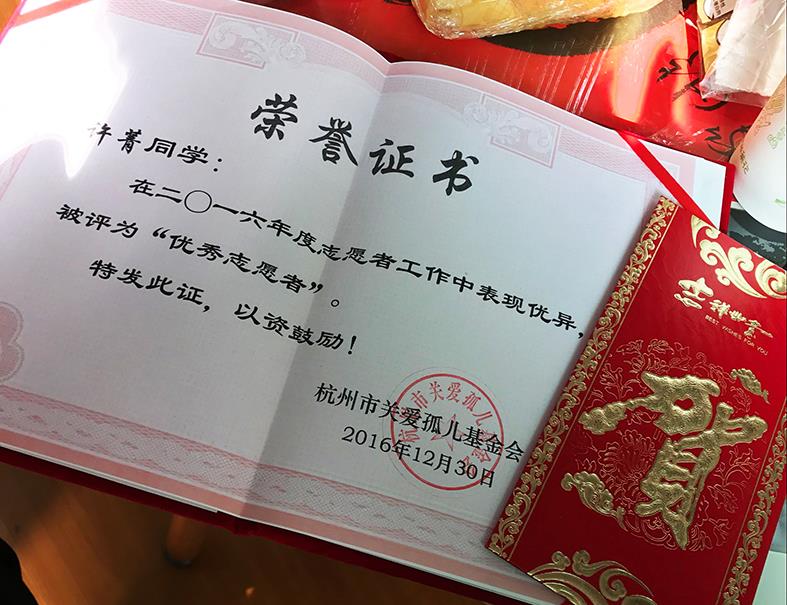 荣誉证书
许菁同学：
在二〇一六年度志愿者工作中表现优异，
被评为“优秀志愿者”。
特发此证，以资鼓励！
杭州市关爱孤儿基金会
2016年12月30日
吉祥如意
BEST WISHES FOR YOU
贺